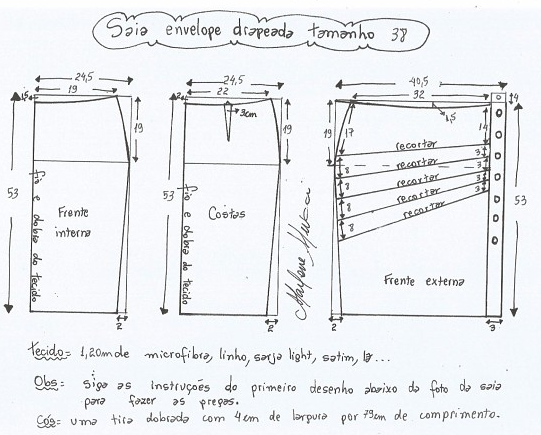 Saia envelope drapeada tamanho 38
24,5
19
1,5
19
53
fio e dobra do tecido
Frente
interna
2
24,5
22
2
3cm
19
53
fio e dobra do tecido
Costas
2
Marlene Mukai
40,5
32
4
1,5
19
17
14
recortar
3
recortar
3
8
recortar
3
8
recortar
3
8
recortar
8
53
Frente externa
2
3
tecido= 1,20m de microfibra, linho, sarja light, satim, lã...
Obs= Siga as instruções do primeiro desenho abaixo da foto da saia
para fazer as pregas.
Cós= uma tira dobrada com 4cm de largura por 79cm de comprimento.